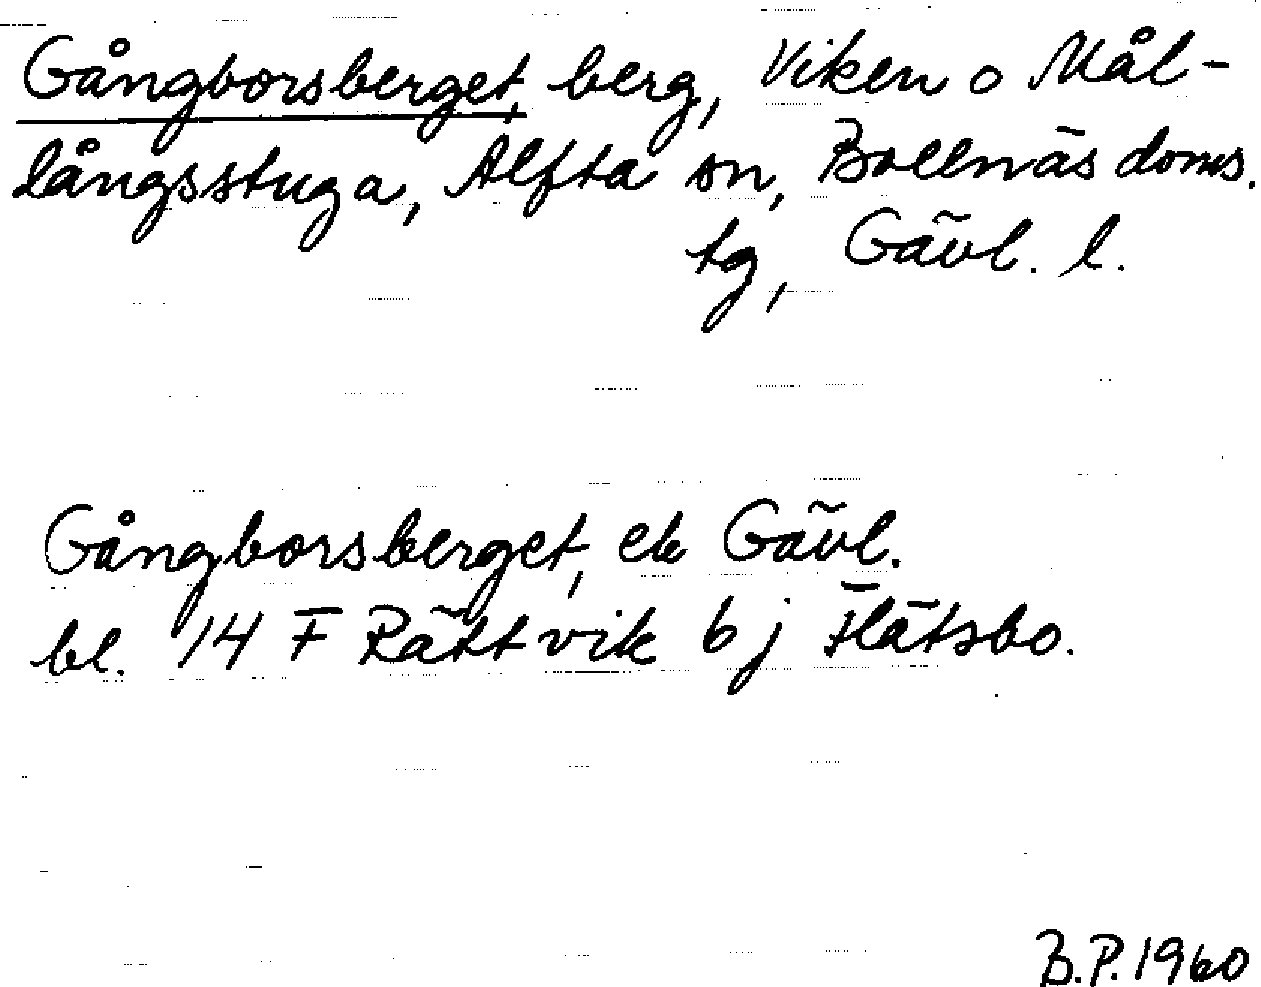 Gångborsberget, berg, Viken o Mål-
långsstuga, Alfta sn, Bollnäs doms.
tg, Gävl. l.
Gångborsberget, ek Gävl.
bl. 14 F Rättvik 6 j Flätsbo.
B.P. 1960